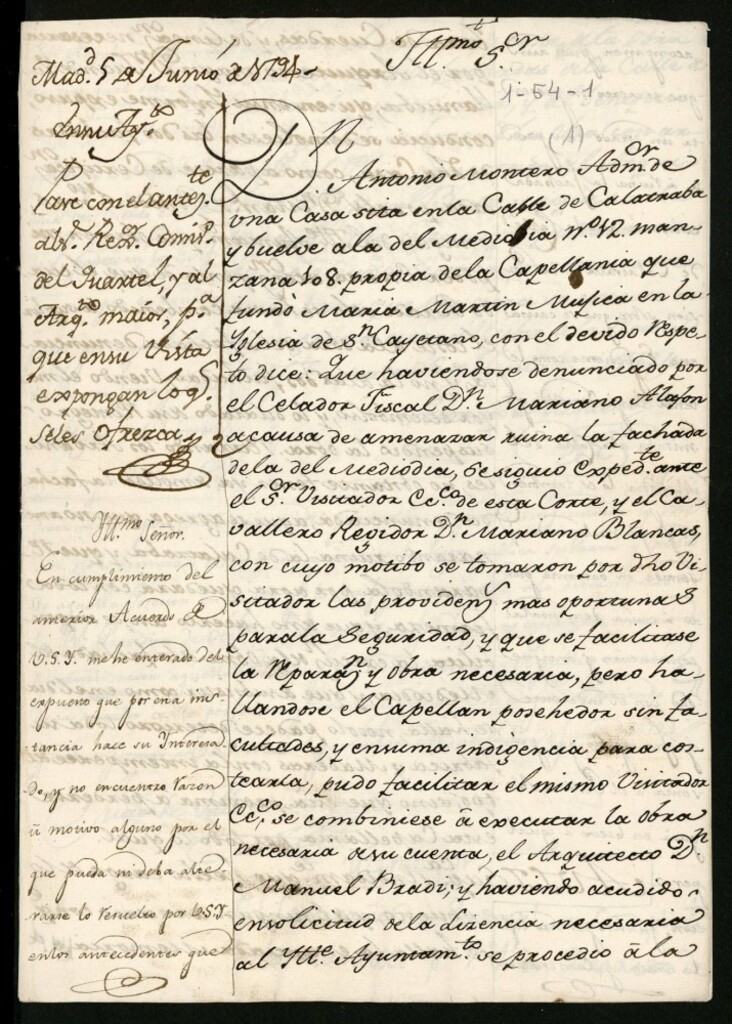 Yll.mo S.or
1-54-1
(1)
Mad.d 5 de Junio de 1794.
En su Ay.to
Pase con el antez.te
al S.r Rex.r Comis.o
del Quartel, y al
Arq.to maior, p.a
que en su vista
expongan lo q.e
seles ofrezca
Yll.mo Señor.
En cumplimiento del
anterior Acuerdo de
V.S.Y. me he enterado del
expuesto que por esta ins-
tancia hace su Interesa-
do, y no encuentro razon
ù motivo alguno por el
que pueda ni deba alte-
rarse lo resuelto por V.S.Y.
en los antecedentes que
D.n Antonio Montero Adm.or de
una Casa sita en la Calle de Calatraba
y buelve ala del Mediodia n.o 12. man-
zana 108. propia dela Capellania que
fundò Maria Martin Mugica en la
Yglesia de S.n Cayetano, con el devido respe-
to dice: Que haviendose denunciado por
el Celador Fiscal D.n Mariano Alafon
acausa de amenazar ruina la fachada
dela del Mediodia, se siguio exped.te ante
el S.or Visitador Ecc.co de esta Corte, y el Ca-
vallero Regidor D.n Mariano Blancas,
con cuyo motibo se tomaron por dho Vi-
sitador las providen.s mas oportunas
parala Seguridad, y que se facilitase
la repara.n y obra necesaria, pero ha-
llandose el Capellan posehedor sin fa-
cultades, y en suma indigencia para cos-
tearla, pudo facilitar el mismo Visitador
Ecc.co se combiniese à executar la obra
necesaria de su cuenta, el Arquitecto D.n
Manuel Bradi; y haviendo acudido
en solicitud dela Lizencia necesaria
al Ylle. Ayuntam.to se procedio à la